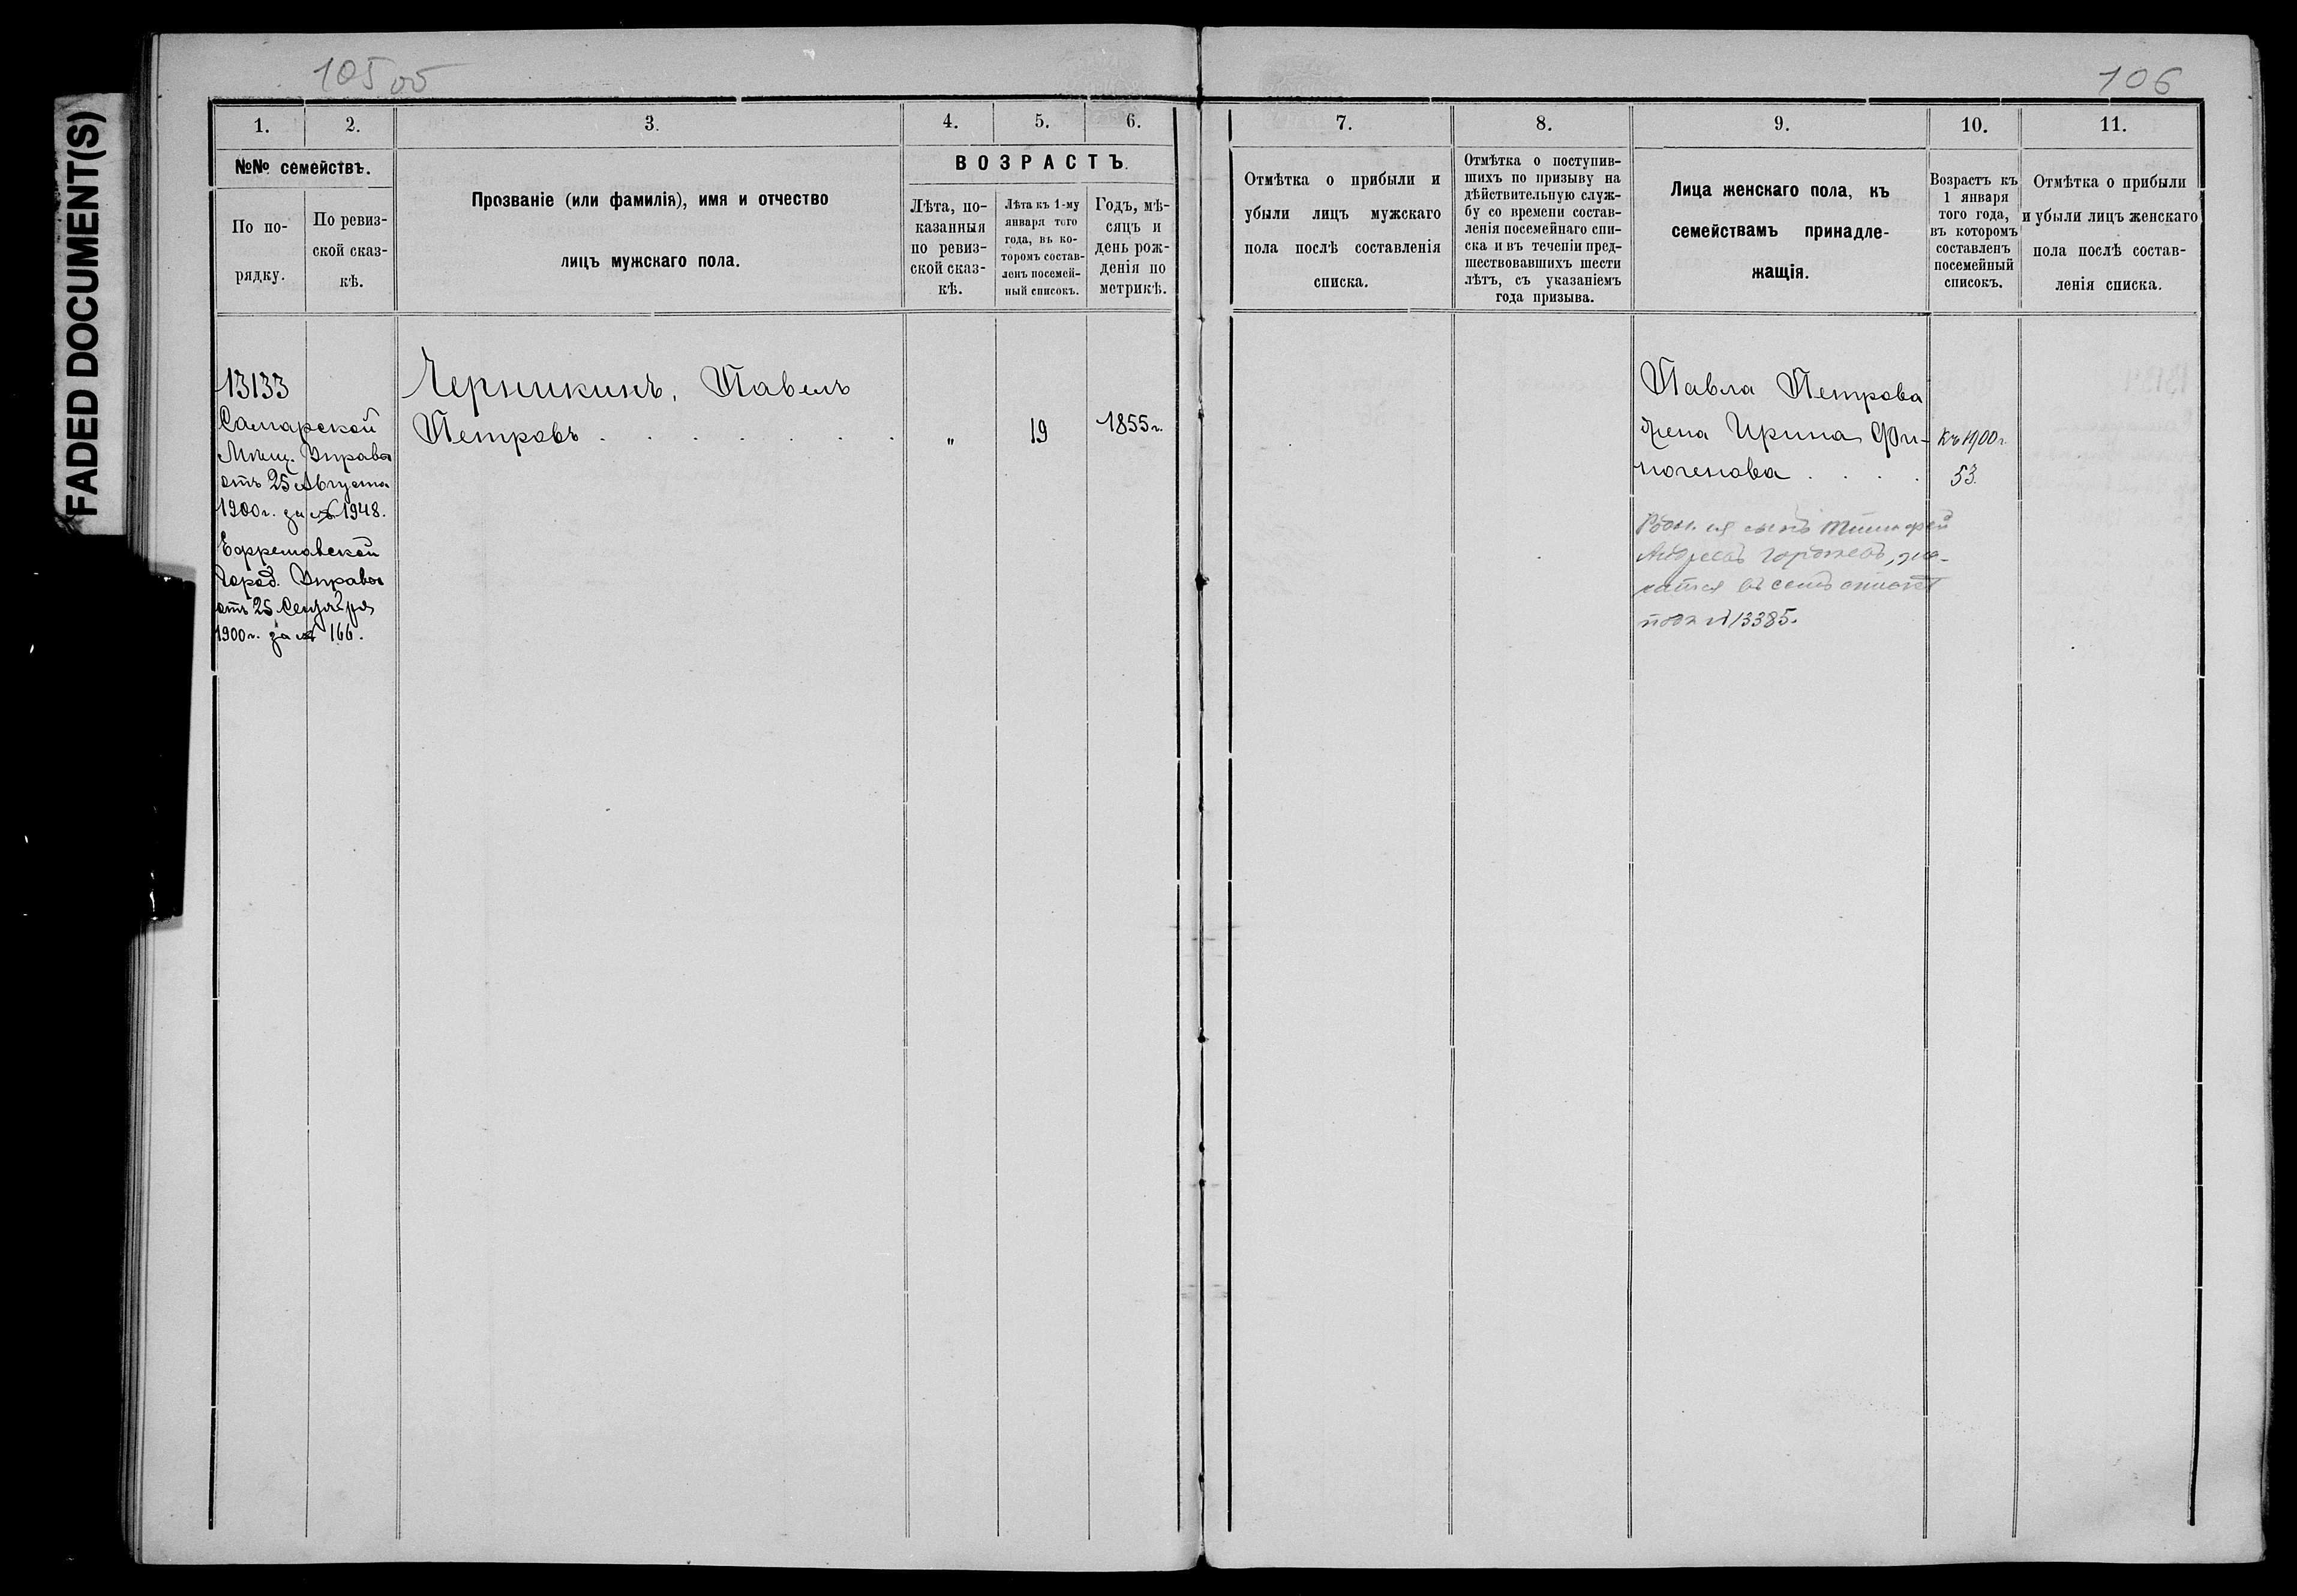 FADED DOCUMENT(S)
105 об
106
1.
2.
3.
4.
5.
6.
№№ семействъ.
По по-
рядку.
По ревиз-
ской сказ-
кѣ.
Прозваніе (или фамилія), имя и отчество
лицъ мужскаго пола.
ВОЗРАСТЪ.
Лѣта, по-
казанныя
по ревиз-
ской сказ-
кѣ.
Лѣта къ 1-му
января того
года, въ ко-
торомъ состав-
ленъ посемей-
ный списокъ.
Годъ, мѣ-
сяцъ и
день рож-
денія по
метрикѣ.
7.
8.
9.
10.
11.
Отмѣтка о прибыли и
убыли лицъ мужскаго
пола послѣ составленія
списка.
Отмѣтка о поступив-
шихъ по призыву на
дѣйствительную служ-
бу со времени состав-
ленія посемейнаго спи-
ска и въ теченіи пред-
шествовавшихъ шести
лѣтъ, съ указаніемъ
года призыва.
Лица женскаго пола, къ
семействамъ принадле-
жащія.
Возрастъ къ
1 января
того года,
въ которомъ
составленъ
посемейный
списокъ.
Отмѣтка о прибыли
и убыли лицъ женскаго
пола послѣ состав-
ленія списка.
13133
Самарской
Мѣщ. Управы
отъ 25 Августа
1900 г. за № 1948.
Ефремовской
Город. Управы
отъ 25 Сентября
1900 г. за № 166.
Черникинъ, Павелъ
Петровъ . . . . . . .
„
19
1855 г.
Павла Петрова
жена Ирина Фи-
ногенова . . . .
Къ 1900 г.
53.
сынъ Тимофей
Андреевъ
под № 13385.